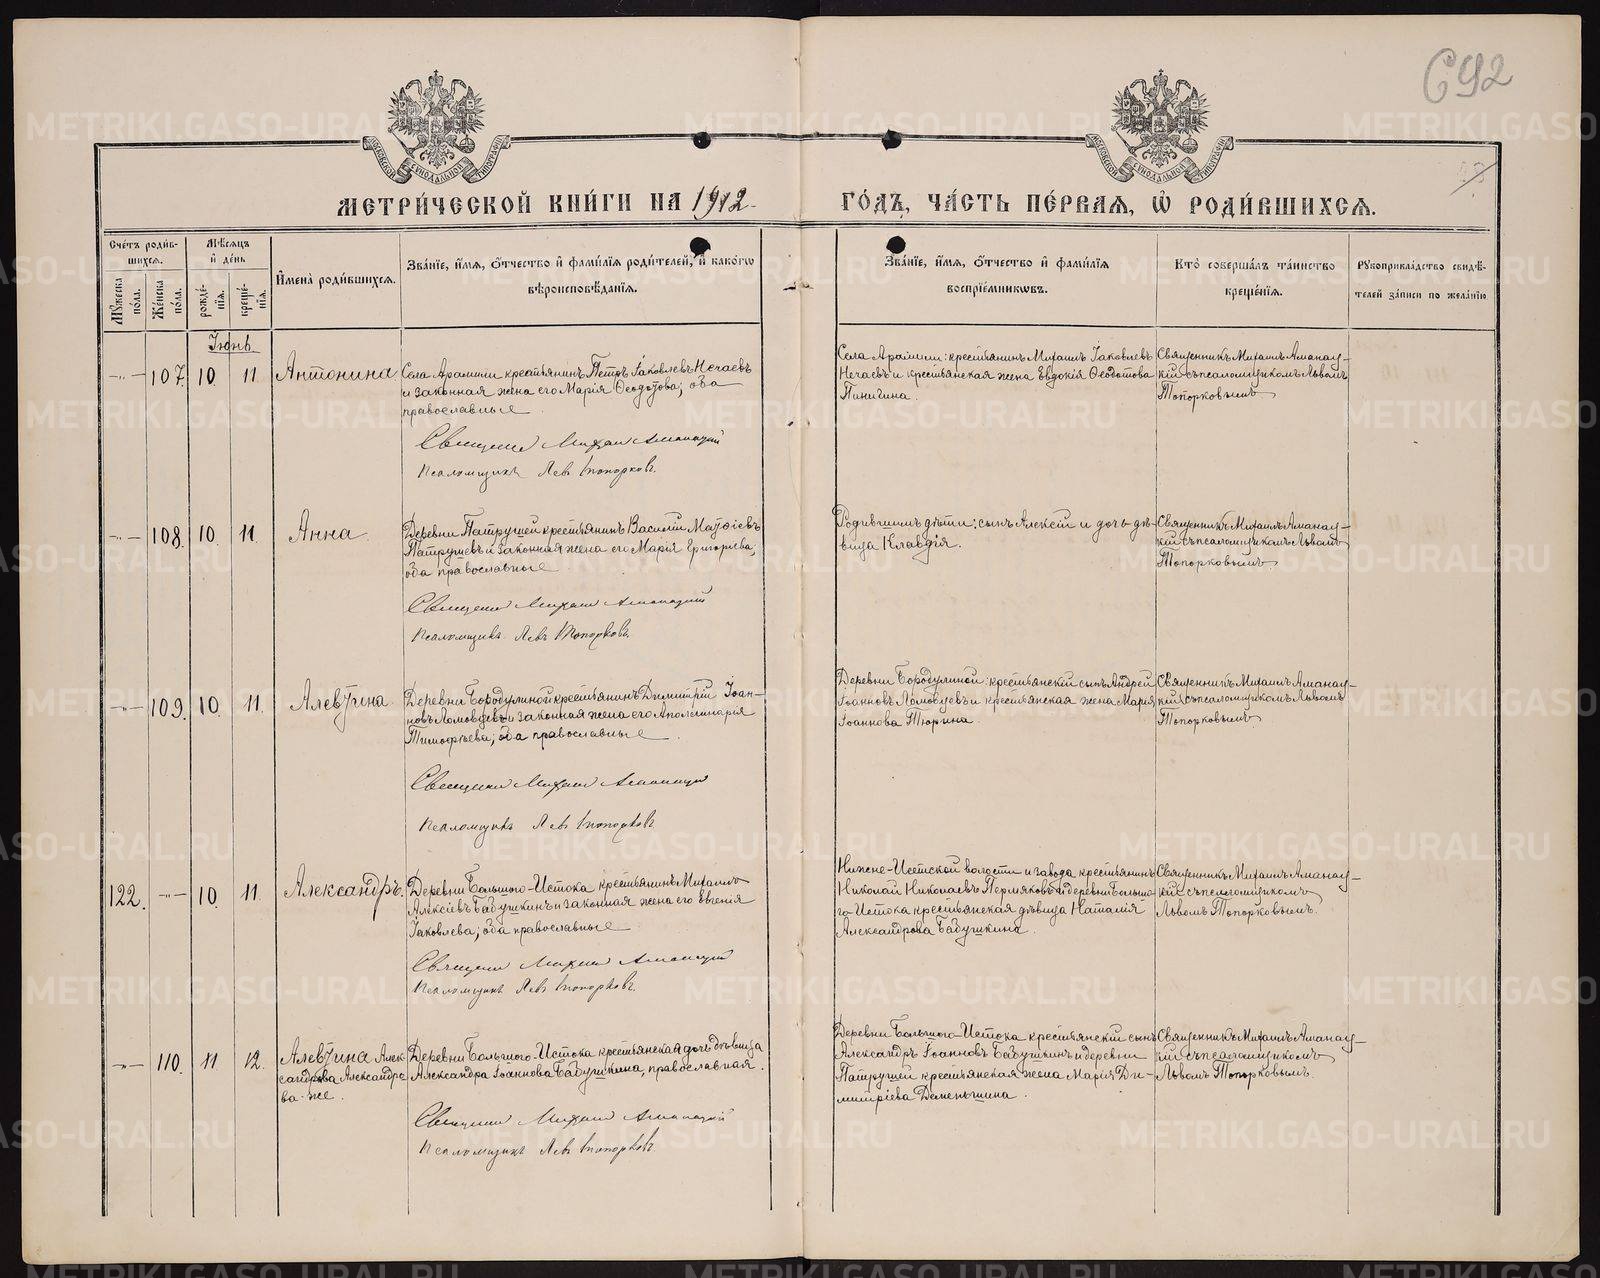 С92
МЕТРИ́ЧЕСКОЙ КНИ́ГИ НА 1912
ГО́ДЪ, ЧА́СТЬ ПЕ́РВАЯ, Ѡ҆ РОДИ́ВШИХСЯ.
Сче́тъ роди́в-
шихся.
Му́жеска по́ла.
Же́нска по́ла.
Мѣ́сяцъ
и де́нь
рожде́-
нїя.
креще́-
нїя.
И҆мена̀ роди́вшихся.
Зва́нїе, и҆́мя, ѻ҆́тчество и҆ фами́лїя роди́телей, и҆ како́гѡ
вѣроисповѣ́данїя.
Зва́нїе, и҆́мя, ѻ҆́тчество и҆ фами́лїя
воспрїе́мникѡвъ.
Кто̀ соверша́лъ та́инство
креще́нїя.
Рꙋкоприкла́дство свидѣ́-
телей за́писи по жела́нїю
Іюнь
-"- 107. 10. 11 Антонина
Села Арамили крестьянинъ Петръ Іаковлевъ Нечаевъ
и законная жена его Марія Ѳеодотова; оба
православные
Священникъ Михаилъ
Псаломщикъ Левъ Топорковъ.
Села Арамили: крестьянинъ Михаилъ Іаковлевъ
Нечаевъ и крестьянская жена Евдокія Ѳеодотова
Паничина.
Священникъ Михаилъ
кій съ псаломщикомъ Львомъ
Топорковымъ
-"- 108. 10. 11. Анна
Деревни Патрушей крестьянинъ Василій Матѳіевъ
Патрушевъ и законная жена его Марія Григорьева,
оба православные
Священникъ Михаилъ
Псаломщикъ Левъ Топорковъ.
Родившимъ дѣти: сынъ Алексій и дочь дѣ-
вица Клавдія.
Священникъ Михаилъ
кій съ псаломщикомъ Львомъ
Топорковымъ
-"- 109. 10. 11. Алевтина
Деревни Бородулиной крестьянинъ Димитрій Іоан-
новъ Ломовцевъ и законная жена его Аполлинарія
Тимофѣева; оба православные
Священникъ Михаилъ
Псаломщикъ Левъ Топорковъ
Деревни Бородулиной: крестьянскій сынъ Андрей
Іоанновъ Ломовцевъ и крестьянская жена Марія
Іоаннова Тюрина
Священникъ Михаилъ
кій съ псаломщикомъ Львомъ
Топорковымъ
122. -"- 10. 11. Александръ.
Деревни Большого-Истока крестьянинъ Михаилъ
Алексіевъ Бабушкинъ и законная жена его Евгенія
Іаковлева; оба православные
Священникъ Михаилъ
Псаломщикъ Левъ Топорковъ.
Нижне-Исетской волости и завода крестьянинъ
Николай Николаевъ Пермяковъ и деревни Больша-
го-Истока крестьянская дѣвица Наталія
Александрова Бабушкина.
Священникъ Михаилъ
кій съ псаломщикомъ
Львомъ Топорковымъ.
-"- 110. 11 12. Алевтина Алек-
сандрова Александро
ва-же.
Деревни Большого-Истока крестьянская дочь дѣвица
Александра Іоаннова Бабушкина, православная.
Священникъ Михаилъ
Псаломщикъ Левъ Топорковъ.
Деревни Большого-Истока крестьянскій сынъ
Александръ Іоанновъ Бабушкинъ и деревни
Патрушей крестьянская жена Марія Ди-
митріева Деменьшина.
Священникъ Михаилъ
кій съ псаломщикомъ
Львомъ Топорковымъ.
METRIKI.GASO-URAL.RU